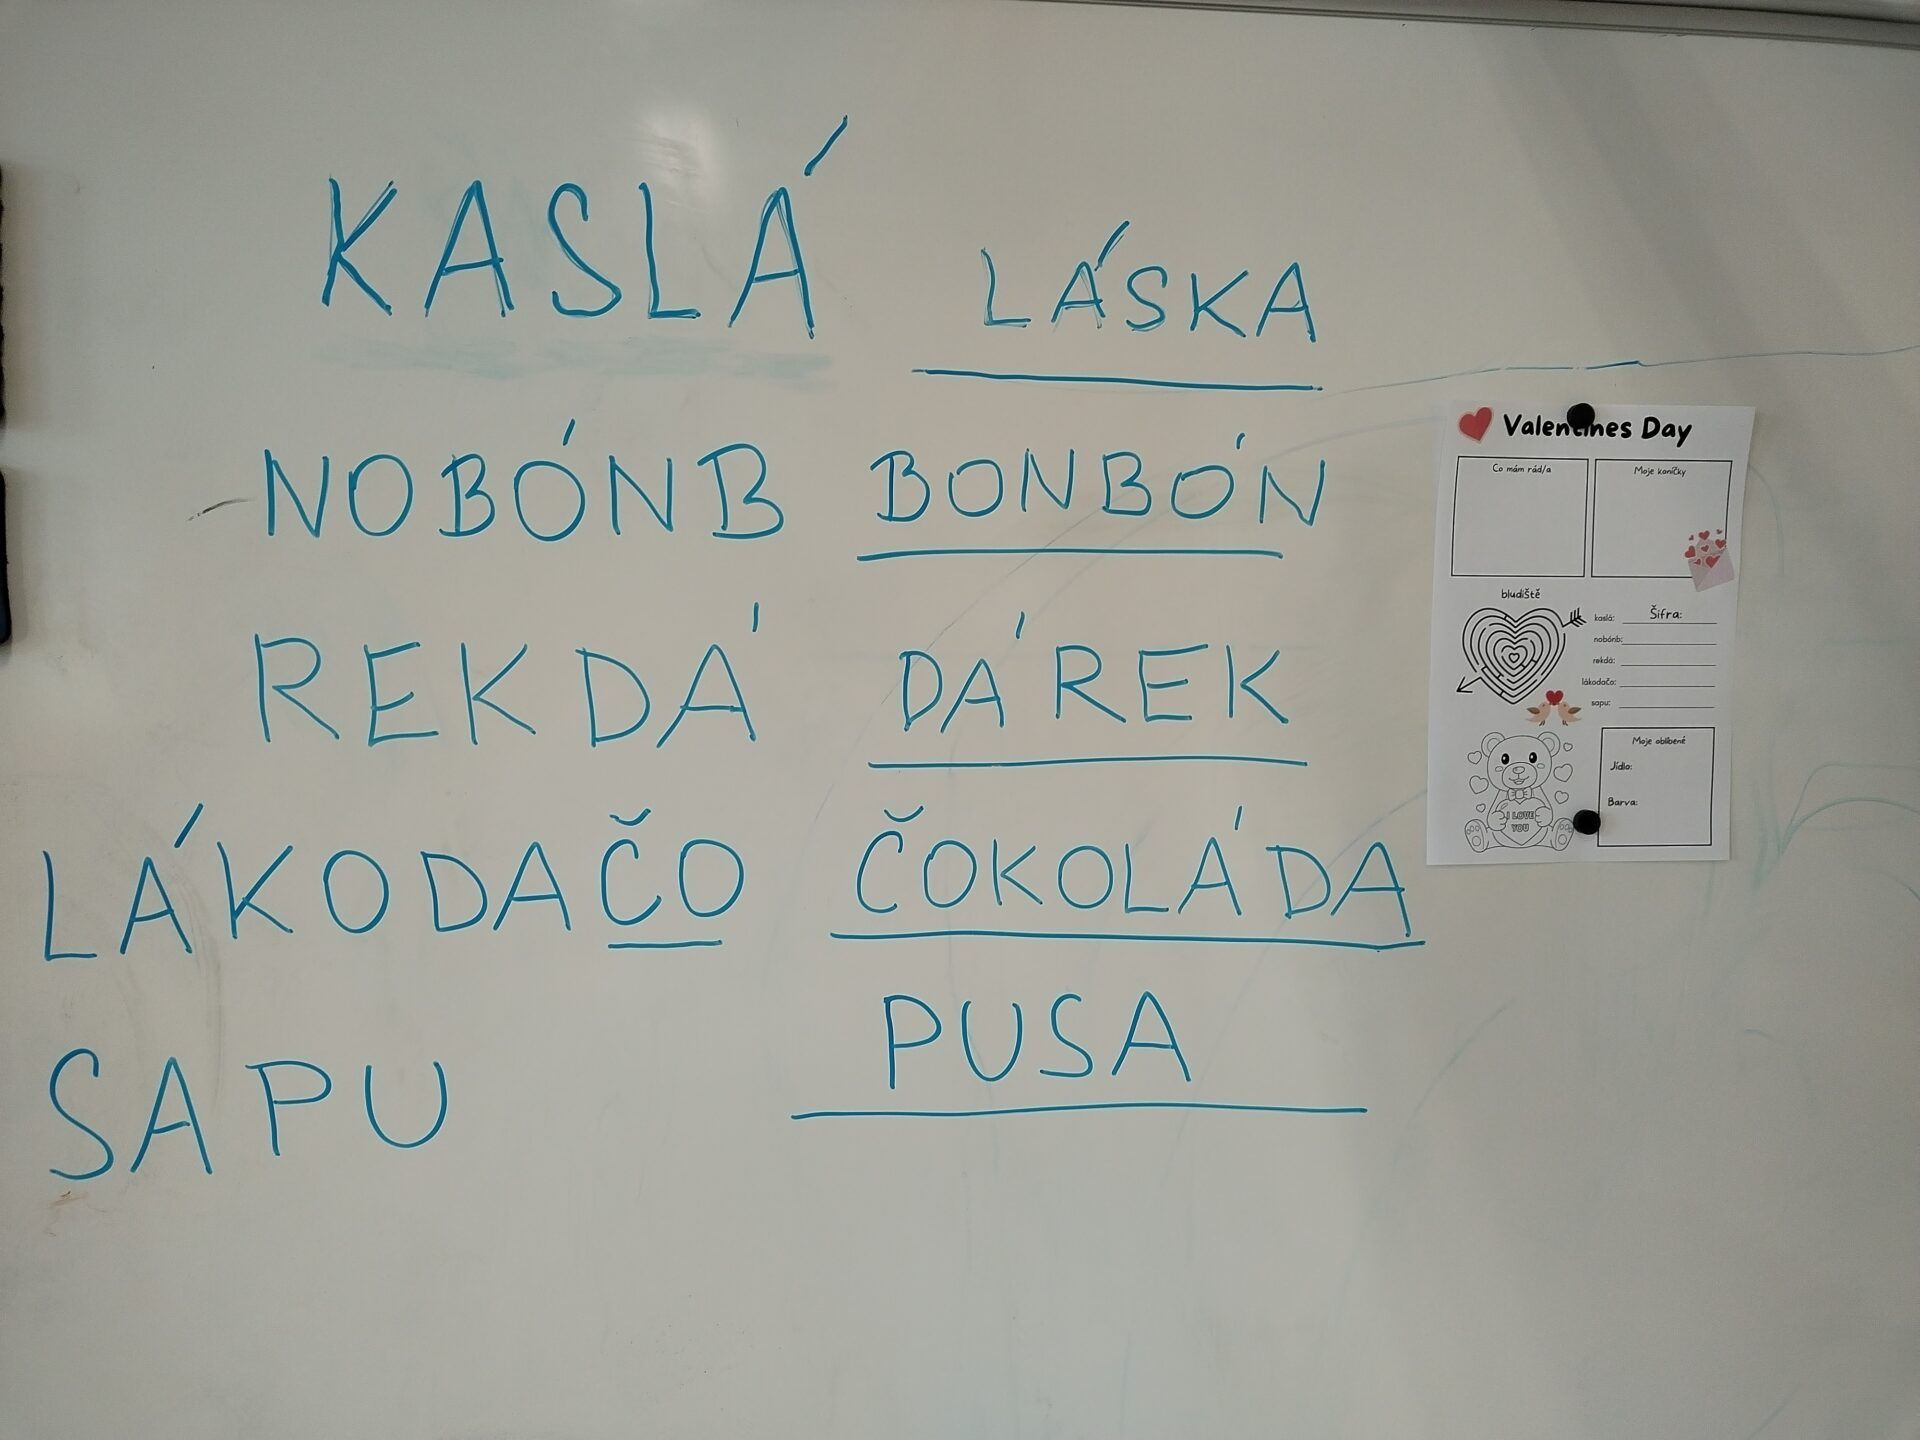 KASLÁ LÁSKA
NOBÓNB BONBÓN
REKDÁ DÁREK
LÁKODAČO ČOKOLÁDA
SAPU PUSA
Valentines Day
Co mám rád/a
Moje koníčky
bludiště
Šifra:
kaslá:
nobónb:
rekdá:
lákodačo:
sapu:
I LOVE
YOU
Moje oblíbené
Jídlo:
Barva: